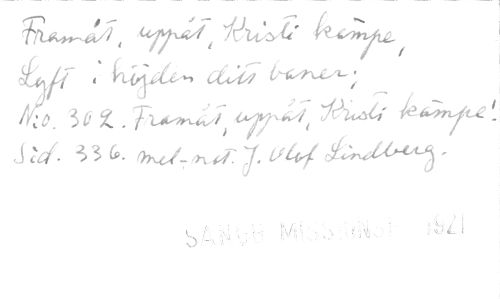 Framåt, uppåt, Kristi kämpe,
Lyft i höjden ditt baner;
N:o. 302. Framåt, uppåt, Kristi kämpe!
Sid. 336. mel-not. J. Olof Lindberg.
1921